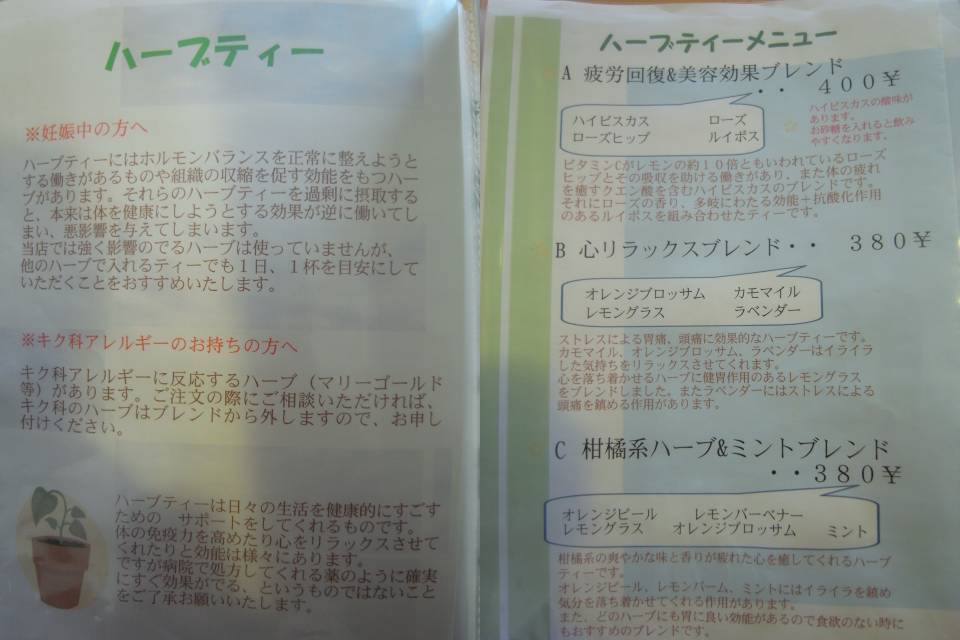 ハーブティー
※妊娠中の方へ
ハーブティーにはホルモンバランスを正常に整えようと
する働きがあるものや組織の収縮を促す効能をもつハー
ブがあります。それらのハーブティーを過剰に摂取する
と、本来は体を健康にしようとする効果が逆に働いてし
まい、悪影響を与えてしまいます。
当店では強く影響のでるハーブは使っていませんが、
他のハーブで入れるティーでも1日、1杯を目安にして
いただくことをおすすめいたします。
※キク科アレルギーのお持ちの方へ
キク科アレルギーに反応するハーブ（マリーゴールド
等）があります。ご注文の際にご相談いただければ、
キク科のハーブはブレンドから外しますので、お申し
付けください。
ハーブティーは日々の生活を健康的にすごす
ための サポートをしてくれるものです。
体の免疫力を高めたり心をリラックスさせて
くれたりと効能は様々にあります。
ですが病院で処方してくれる薬のように確実
にすぐ効果がでる、というものではないこと
をご了承お願いいたします。
ハーブティーメニュー
A 疲労回復&美容効果ブレンド
・・ 400￥
ハイビスカス ローズ
ローズヒップ ルイボス
ハイビスカスの酸味が
あります。
お砂糖を入れると飲み
やすくなります。
ビタミンCがレモンの約10倍ともいわれているローズ
ヒップとその吸収を助ける働きがあり、また体の疲れ
を癒すクエン酸を含むハイビスカスのブレンドです。
それにローズの香り、多岐にわたる効能＋抗酸化作用
のあるルイボスを組み合わせたティーです。
B 心リラックスブレンド・・ 380￥
オレンジブロッサム カモマイル
レモングラス ラベンダー
ストレスによる胃痛、頭痛に効果的なハーブティーです。
カモマイル、オレンジブロッサム、ラベンダーはイライラ
した気持ちをリラックスさせてくれます。
心を落ち着かせるハーブに健胃作用のあるレモングラス
をブレンドしました。またラベンダーにはストレスによる
頭痛を鎮める作用があります。
C 柑橘系ハーブ&ミントブレンド
・・380￥
オレンジピール レモンバーベナー
レモングラス オレンジブロッサム ミント
柑橘系の爽やかな味と香りが疲れた心を癒してくれるハーブ
ティーです。
オレンジピール、レモンバーム、ミントにはイライラを鎮め
気分を落ち着かせてくれる作用があります。
また、どのハーブにも胃に良い効能があるので食欲のない時に
もおすすめのブレンドです。